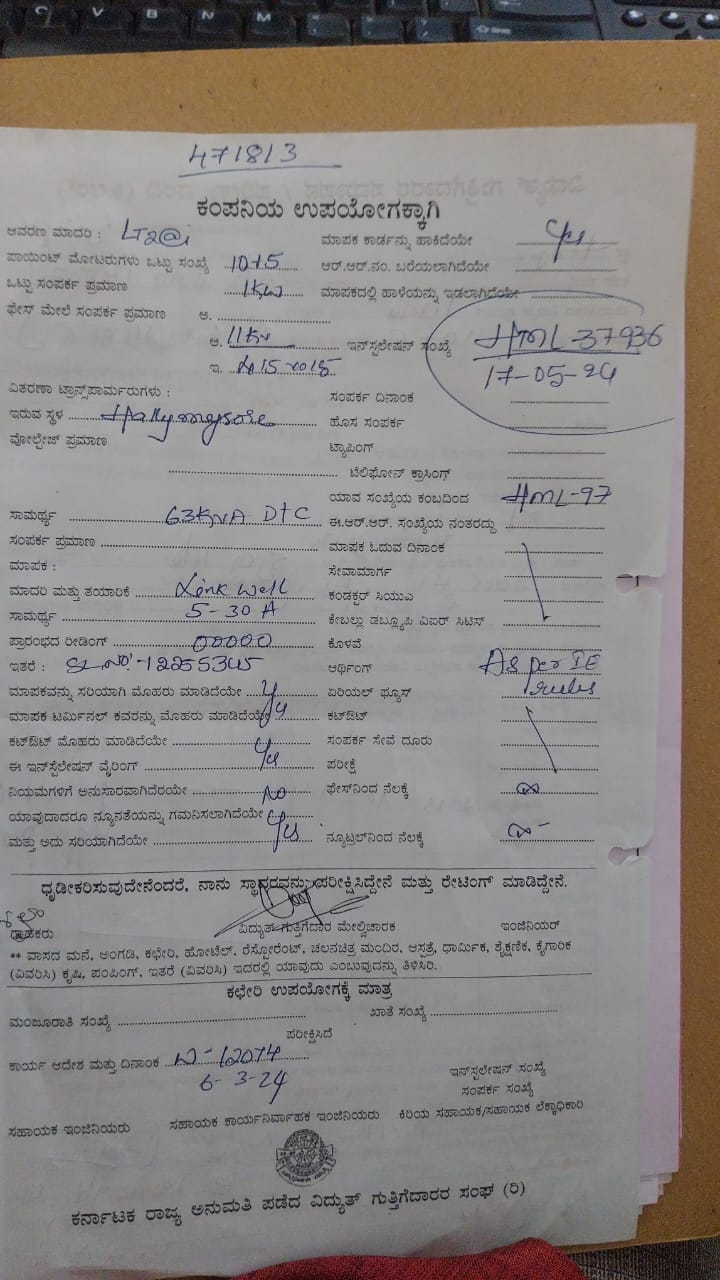 471813
ಕಂಪನಿಯ ಉಪಯೋಗಕ್ಕಾಗಿ
ಆವರಣ ಮಾದರಿ : LT2@i
ಮಾಪಕ ಕಾರ್ಡನ್ನು ಹಾಕಿದೆಯೇ yes
ಪಾಯಿಂಟ್ ಮೋಟರುಗಳು ಒಟ್ಟು ಸಂಖ್ಯೆ 10+5
ಆರ್.ಆರ್.ನಂ. ಬರೆಯಲಾಗಿದೆಯೇ
ಒಟ್ಟು ಸಂಪರ್ಕ ಪ್ರಮಾಣ 1Kw
ಮಾಪಕದಲ್ಲಿ ಹಾಳೆಯನ್ನು ಇಡಲಾಗಿದೆಯೇ
ಫೇಸ್ ಮೇಲೆ ಸಂಪರ್ಕ ಪ್ರಮಾಣ ಅ.
ಆ. 11Kv
ಇನ್‌ಸ್ಟಲೇಷನ್ ಸಂಖ್ಯೆ HML-37936
17-05-24
ಇ.
ವಿತರಣಾ ಟ್ರಾನ್ಸ್‌ಪಾರ್ಮರುಗಳು :
ಸಂಪರ್ಕ ದಿನಾಂಕ
ಇರುವ ಸ್ಥಳ Hallymysore
ಹೊಸ ಸಂಪರ್ಕ
ವೋಲ್ಟೇಜ್ ಪ್ರಮಾಣ
ಟ್ಯಾಪಿಂಗ್
ಟೆಲಿಫೋನ್ ಕ್ರಾಸಿಂಗ್
ಯಾವ ಸಂಖ್ಯೆಯ ಕಂಬದಿಂದ HML-97
ಸಾಮರ್ಥ್ಯ 63KVA DTC
ಈ.ಆರ್.ಆರ್. ಸಂಖ್ಯೆಯ ನಂತರದ್ದು
ಸಂಪರ್ಕ ಪ್ರಮಾಣ
ಮಾಪಕ ಓದುವ ದಿನಾಂಕ
ಮಾಪಕ :
ಸೇವಾಮಾರ್ಗ
ಮಾದರಿ ಮತ್ತು ತಯಾರಿಕೆ Link well
ಕಂಡಕ್ಟರ್ ಸಿಯುಎ
ಸಾಮರ್ಥ್ಯ 5-30 A
ಕೇಬಲ್ಲು ಡಬ್ಲ್ಯೂಪಿ ವಿಐರ್ ಸಿಟಿಸ್
ಪ್ರಾರಂಭದ ರೀಡಿಂಗ್ 00000
ಕೊಳವೆ
ಇತರೆ : SL.NO:-12255345
ಆರ್ಥಿಂಗ್ As per IE
rules
ಮಾಪಕವನ್ನು ಸರಿಯಾಗಿ ಮೊಹರು ಮಾಡಿದೆಯೇ
ಏರಿಯಲ್ ಫ್ಯೂಸ್
ಮಾಪಕ ಟರ್ಮಿನಲ್ ಕವರನ್ನು ಮೊಹರು ಮಾಡಿದೆಯೇ
ಕಟ್‌ಔಟ್
ಕಟ್‌ಔಟ್ ಮೊಹರು ಮಾಡಿದೆಯೇ yes
ಸಂಪರ್ಕ ಸೇವೆ ದೂರು
ಈ ಇನ್‌ಸ್ಟೆಲೇಷನ್ ವೈರಿಂಗ್
ಪರೀಕ್ಷೆ
ನಿಯಮಗಳಿಗೆ ಅನುಸಾರವಾಗಿದೆರಯೇ NO
ಫೇಸ್‌ನಿಂದ ನೆಲಕ್ಕೆ ∞
ಯಾವುದಾದರೂ ನ್ಯೂನತೆಯನ್ನು ಗಮನಿಸಲಾಗಿದೆಯೇ
ಮತ್ತು ಅದು ಸರಿಯಾಗಿದೆಯೇ yes
ನ್ಯೂಟ್ರಲ್‌ನಿಂದ ನೆಲಕ್ಕೆ ∞
ಧೃಡೀಕರಿಸುವುದೇನೆಂದರೆ, ನಾನು ಸ್ಥಾವರವನ್ನು ಪರೀಕ್ಷಿಸಿದ್ದೇನೆ ಮತ್ತು ರೇಟಿಂಗ್ ಮಾಡಿದ್ದೇನೆ.
ವಿದ್ಯುತ್ ಗುತ್ತಿಗೆದಾರ ಮೇಲ್ವಿಚಾರಕ ಇಂಜಿನಿಯರ್
** ವಾಸದ ಮನೆ, ಅಂಗಡಿ, ಕಛೇರಿ, ಹೋಟೆಲ್, ರೆಸ್ಟೋರೆಂಟ್, ಚಲನಚಿತ್ರ ಮಂದಿರ, ಆಸ್ಪತ್ರೆ, ಧಾರ್ಮಿಕ, ಶೈಕ್ಷಣಿಕ, ಕೈಗಾರಿಕ
(ವಿವರಿಸಿ) ಕೃಷಿ, ಪಂಪಿಂಗ್, ಇತರೆ (ವಿವರಿಸಿ) ಇದರಲ್ಲಿ ಯಾವುದು ಎಂಬುವುದನ್ನು ತಿಳಿಸಿರಿ.
ಕಛೇರಿ ಉಪಯೋಗಕ್ಕೆ ಮಾತ್ರ
ಮಂಜೂರಾತಿ ಸಂಖ್ಯೆ ಖಾತೆ ಸಂಖ್ಯೆ
ಪರೀಕ್ಷಿಸಿದೆ
ಕಾರ್ಯ ಆದೇಶ ಮತ್ತು ದಿನಾಂಕ
6-3-24
ಇನ್‌ಸ್ಟಲೇಷನ್ ಸಂಖ್ಯೆ
ಸಂಪರ್ಕ ಸಂಖ್ಯೆ
ಸಹಾಯಕ ಇಂಜಿನಿಯರು ಸಹಾಯಕ ಕಾರ್ಯನಿರ್ವಾಹಕ ಇಂಜಿನಿಯರು ಕಿರಿಯ ಸಹಾಯಕ/ಸಹಾಯಕ ಲೆಕ್ಕಾಧಿಕಾರಿ
ಕರ್ನಾಟಕ ರಾಜ್ಯ ಅನುಮತಿ ಪಡೆದ ವಿದ್ಯುತ್ ಗುತ್ತಿಗೆದಾರರ ಸಂಘ (ರಿ)